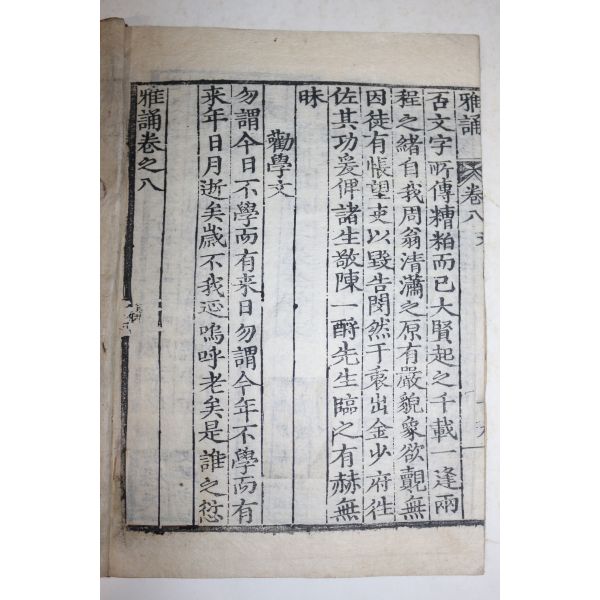 雅誦 卷八 文
舌文字所傳糟粕而已大賢起之千載一逢兩
程之緒自我周翁清瀟之原有嚴貌象欲覿無
因徒有悵望吏以毀告閔然于衷出金少府往
佐其功爰俾諸生敬陳一酹先生臨之有赫無
昧
勸學文
勿謂今日不學而有来日勿謂今年不學而有
来年日月逝矣歲不我延嗚呼老矣是誰之愆
雅誦卷之八